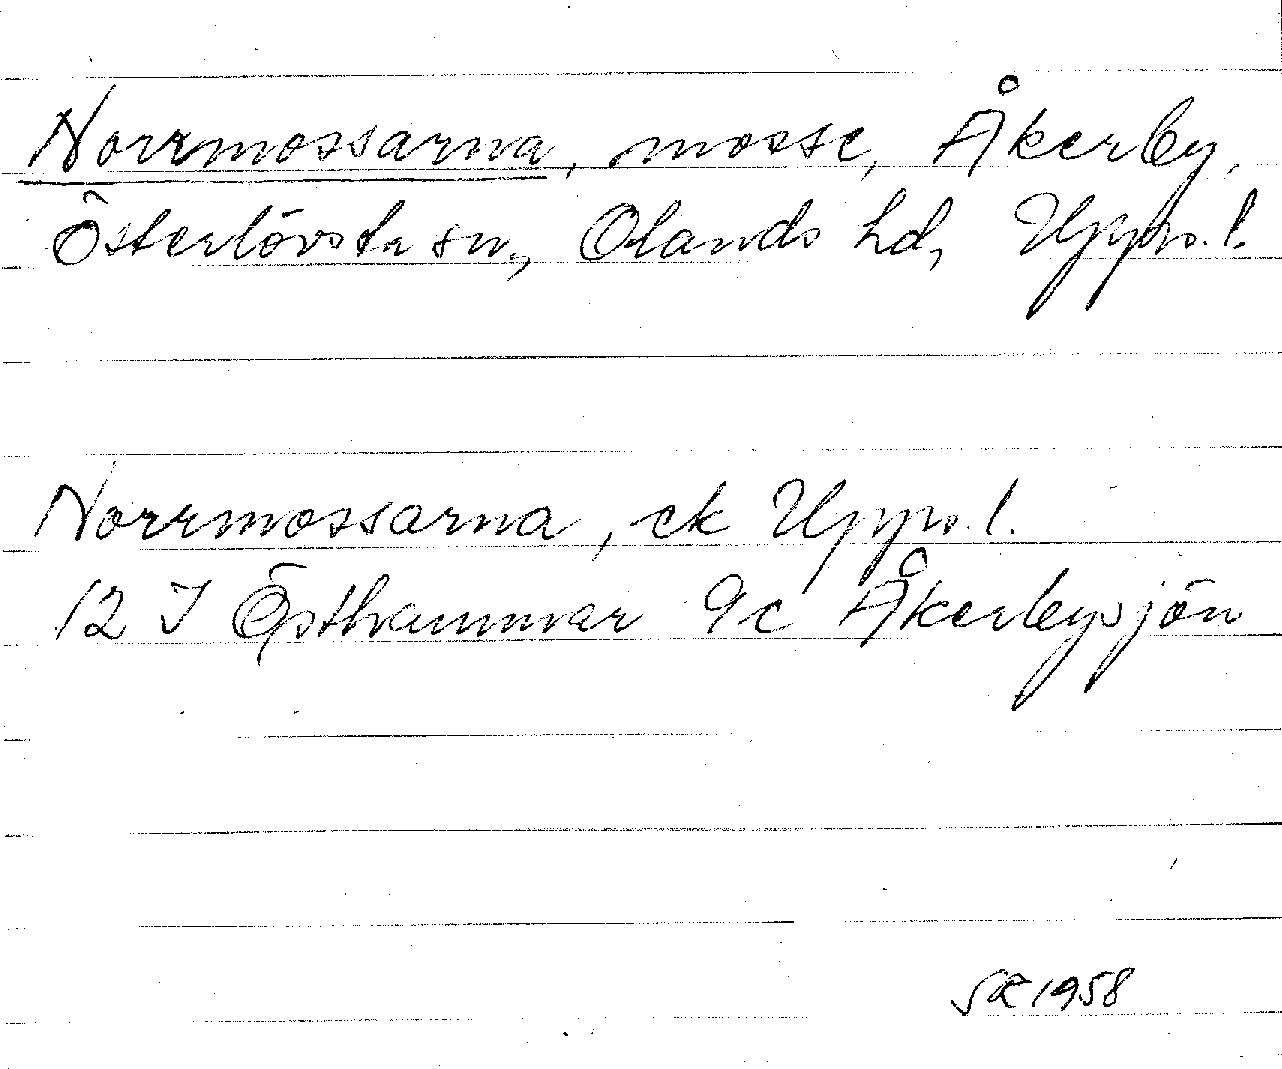 Norrmossarna, mosse, Åkerby,
Österlövsta sn, Olands hd, Uppl.
Norrmossarna, ek Uppl.
12 I Östhammar 9c Åkerbysjön
1958